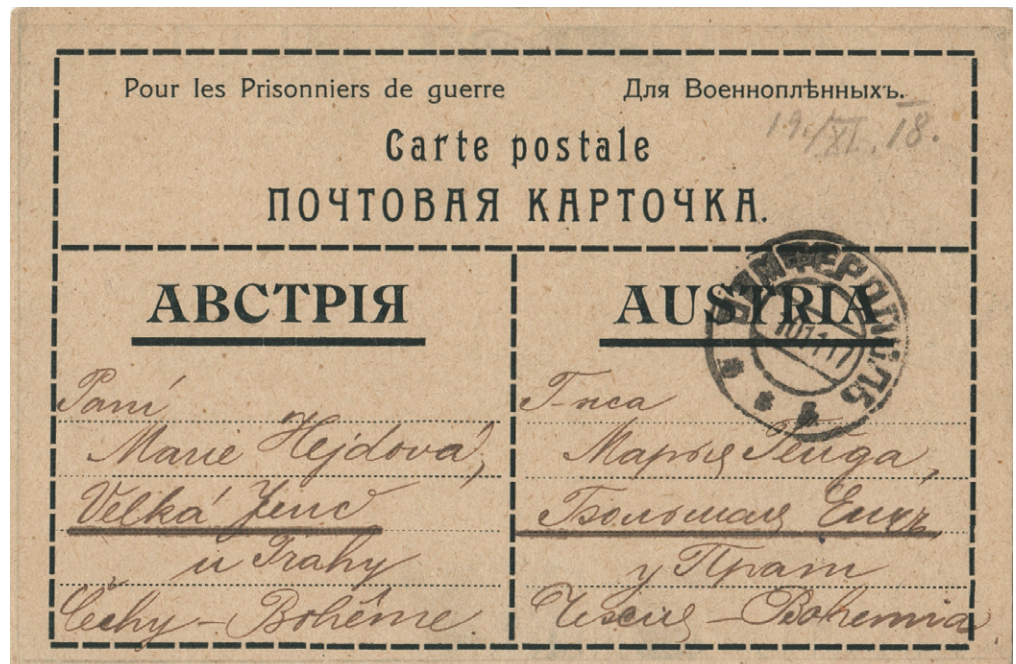 Pour les Prisonniers de guerre
Для Военноплѣнныхъ.
19./XI. 18.
Carte postale
ПОЧТОВАЯ КАРТОЧКА.
АВСТРІЯ
Paní
Marie Hejdová,
Velká Jenč
u Prahy
Čechy - Bohême.
AUSTRIA
СИМФЕРОПОЛЬ
Г-жа
Марья Гейда,
Большая Енчъ
у Праги
Чехия - Bohemia